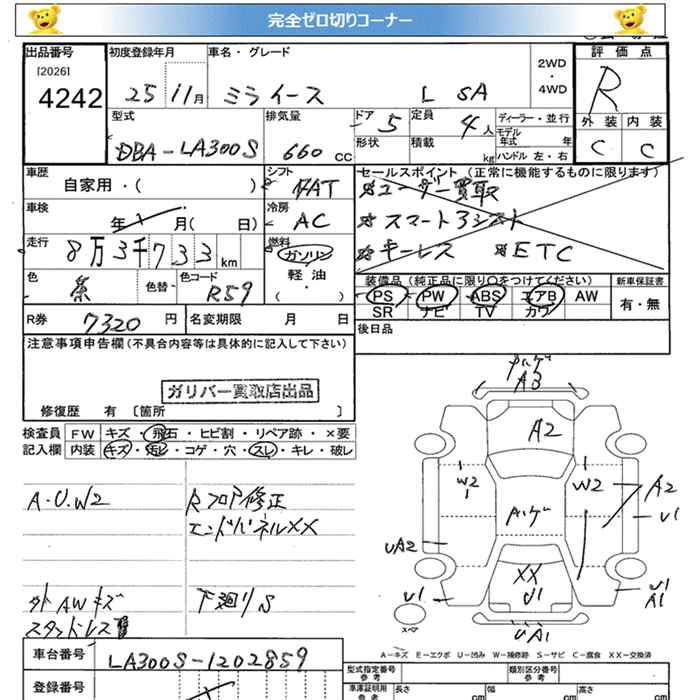 完全ゼロ切りコーナー
出品番号 初度登録年月 車名・グレード 評価点
[2026]
4242 25年 11月 ミライース L SA 2WD・4WD R
型式 排気量 ドア 5 定員 4人 ディーラー・並行 外装 内装
DBA-LA300S 660cc 形状 積載 kg モデル年式 年 ハンドル 左・右 C C
車歴 シフト セールスポイント (正常に機能するものに限ります)
自家用・( ) FAT ユーザー買取
車検 年 月( 日) 冷房 AC スマートアシスト
走行 8万3千733km 燃料 ガソリン キーレス ETC
軽・油
・( )
色 色替・ 色コード R59 装備品 (純正品に限り○をつけてください) 新車保証書
PS PW ABS エアB AW 有・無
SR ナビ TV カワ
R券 7320円 名変期限 月 日 後日品
注意事項申告欄(不具合内容等は具体的に記入して下さい)
ガリバー買取店出品
修復歴 有 [箇所 ]
検査員記入欄 FW キズ・飛石・ヒビ割・リペア跡・×要
内装 キズ・汚レ・コゲ・穴・スレ・キレ・破レ
A.U.W2 Rフロア修正
エンドパネルXX
外AWキズ 下廻りS
スタッドレス
ハゲ
A3
A2
W2 W2 A2
ハゲ U1
UA2
XX
U1
U1 U1
A1
UA1
スペア
A-キズ E-エクボ U-凹み W-補修跡 S-サビ C-腐食 XX-交換済
車台番号 LA300S-1202859
型式指定番号 参考 類別区分番号 参考
登録番号 車庫証明用 参考 長さ cm 幅 cm 高さ cm